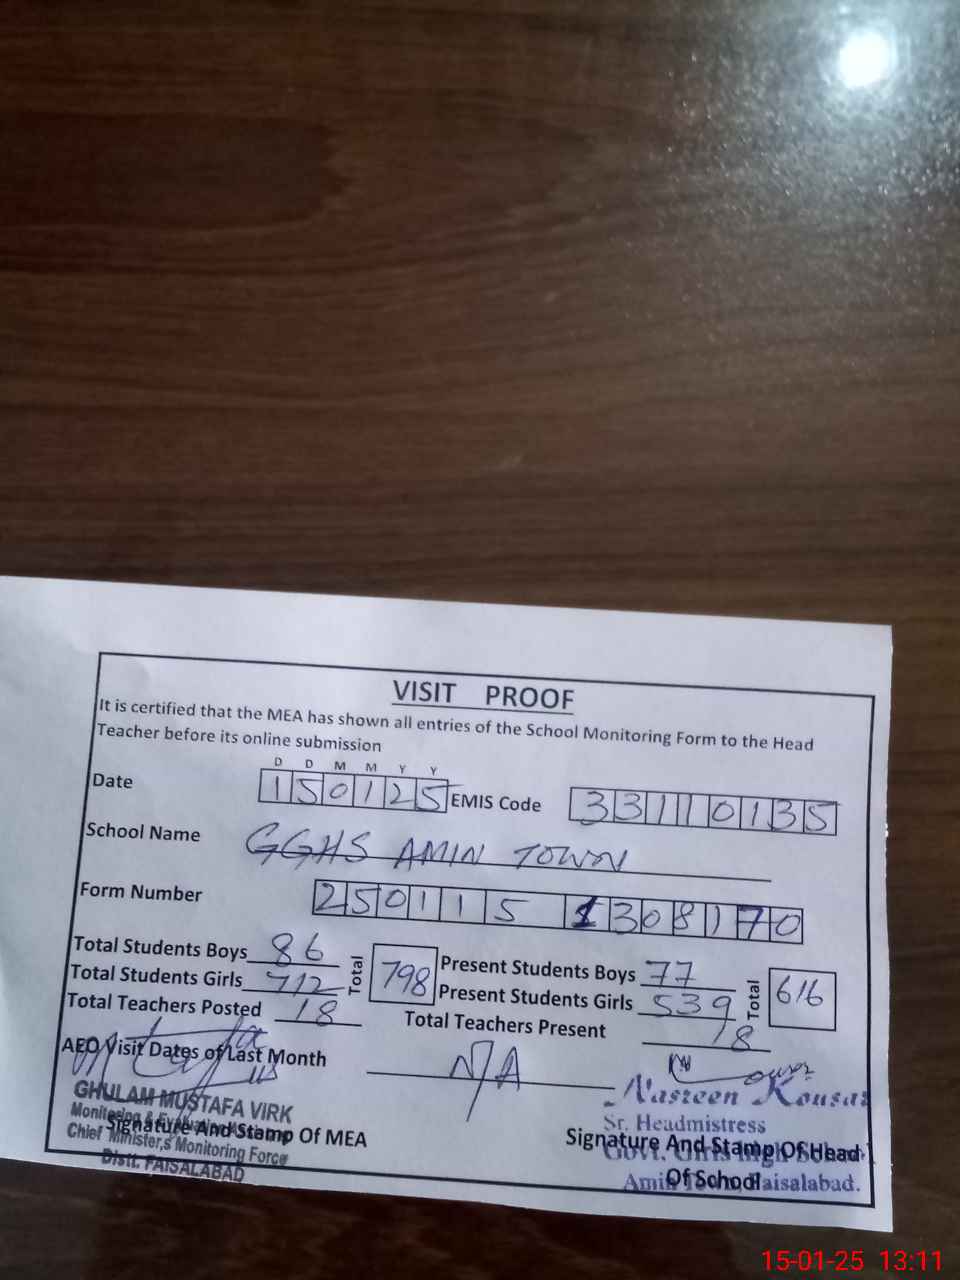 VISIT PROOF
It is certified that the MEA has shown all entries of the School Monitoring Form to the Head
Teacher before its online submission
D D M M Y Y
Date 150125 EMIS Code 33110135
School Name GGHS AMIN TOWN
Form Number 250115 1308170
Total Students Boys 86 Total 798 Present Students Boys 77 Total 616
Total Students Girls 712 Present Students Girls 539
Total Teachers Posted 18 Total Teachers Present 18
AEO Visit Dates of Last Month N/A
GHULAM MUSTAFA VIRK
Monitoring & Evaluation
Chief Minister,s Monitoring Force
Distt. FAISALABAD
Signature And Stamp Of MEA
Nasreen Kousar
Sr. Headmistress
Govt. Girls High School
Amin Town, Faisalabad.
Signature And Stamp Of Head
Of School
15-01-25 13:11